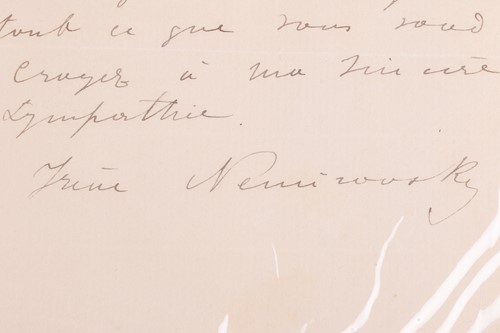 tout ce que vous
Croyez à ma sincère
sympathie.
Irène Nemirovsky